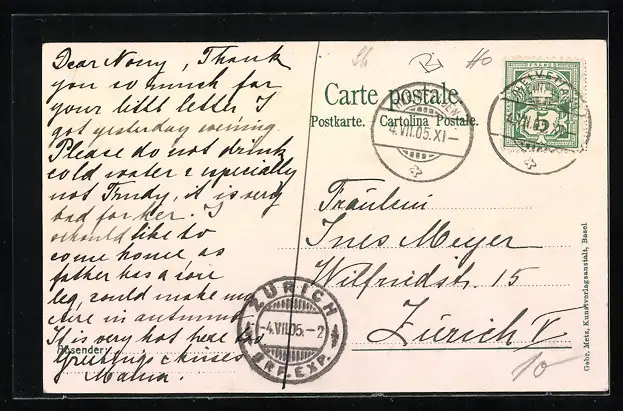 Dear Nony, Thank
you so much for
your little letter I
got yesterday evening.
Please do not drink
cold water & especially
not Trudy, it is very
bad for her. I
should like to
come home as
father has a sore
leg, could make no
cure in autumn
It is very hot here too
Greetings & kisses
Mama.
Absender:
Carte postale.
Postkarte. Cartolina Postale.
4.VII.05.XI
HELVETIA
5
4.VII.05.XI
Fräulein
Ines Meyer
Wilfriedstr. 15
Zürich V
10
ZÜRICH
-4.VII.05.-2
BRF.EXP.
Gebr. Metz, Kunstverlagsanstalt, Basel